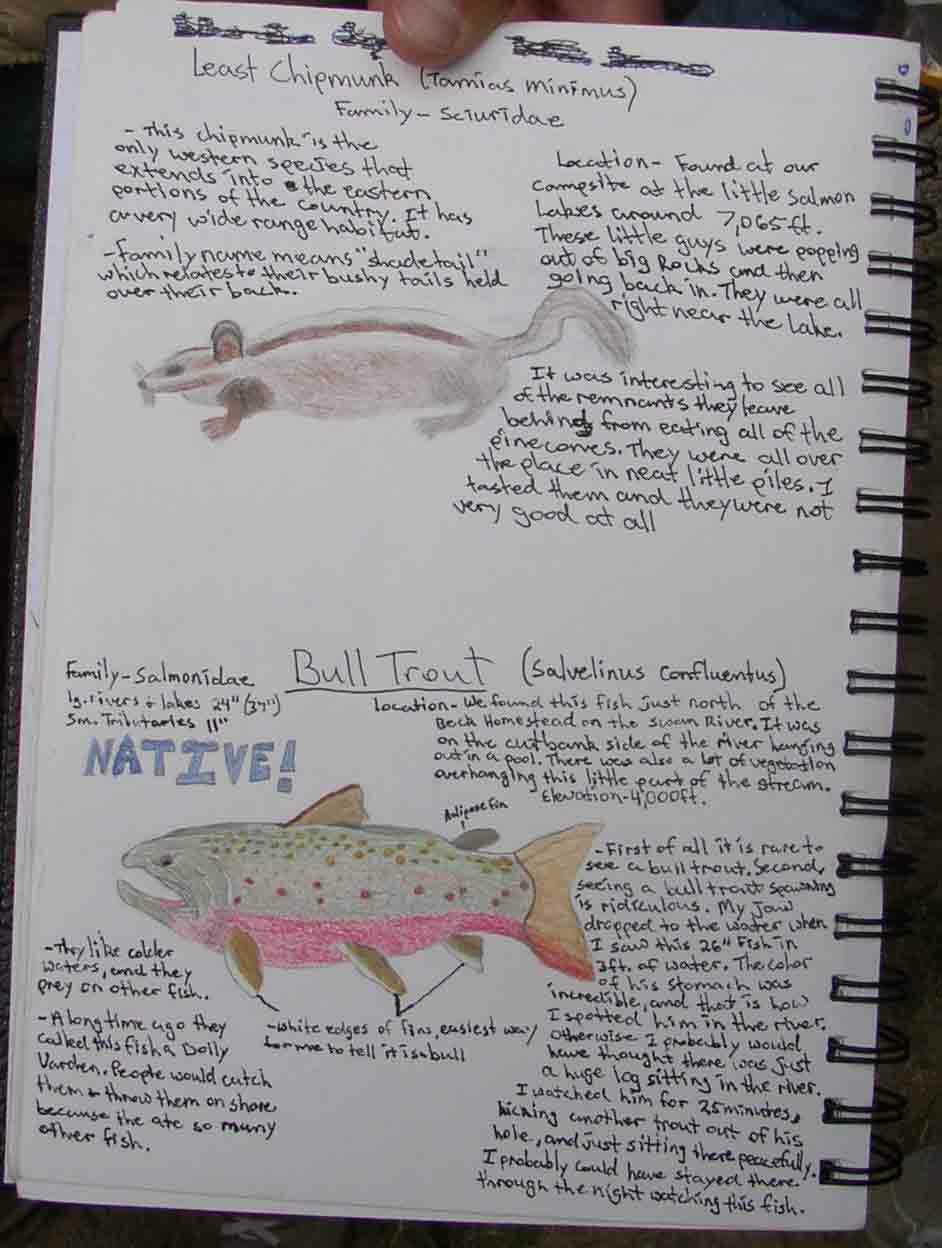 Least Chipmunk (Tamias minimus)
Family - Sciuridae
- This chipmunk is the
only western species that
extends into the eastern
portions of the country. It has
a very wide range habitat.
- Family name means "shadetail"
which relates to their bushy tails held
over their back.
Location - Found at our
campsite at the little salmon
Lakes around 7,065 ft.
These little guys were popping
out of big Rocks and then
going back in. They were all
right near the lake.
It was interesting to see all
of the remnants they leave
behind from eating all of the
pinecones. They were all over
the place in neat little piles. I
tasted them and they were not
very good at all
Family - Salmonidae
lg. rivers + lakes 24" (37")
Sm. Tributaries 11"
NATIVE!
Bull Trout (Salvelinus confluentus)
Location - We found this fish just north of the
Beck Homestead on the Swan River. It was
on the cutbank side of the river hanging
out in a pool. There was also a lot of vegetation
overhanging this little part of the stream.
Elevation - 4,000 ft.
Adipose Fin
- First of all it is rare to
see a bull trout. Second,
seeing a bull trout spawning
is ridiculous. My Jaw
dropped to the water when
I saw this 26" Fish in
3ft. of water. The color
of his stomach was
incredible, and that is how
I spotted him in the river.
Otherwise I probably would
have thought there was just
a huge log sitting in the river.
I watched him for 25 minutes,
kicking another trout out of his
hole, and just sitting there peacefully.
I probably could have stayed there
through the night watching this fish.
- They like colder
waters, and they
prey on other fish.
- A long time ago they
called this fish a Dolly
Varden. People would catch
them + throw them on shore
because the ate so many
other fish.
- White edges of fins, easiest way
for me to tell it is a bull